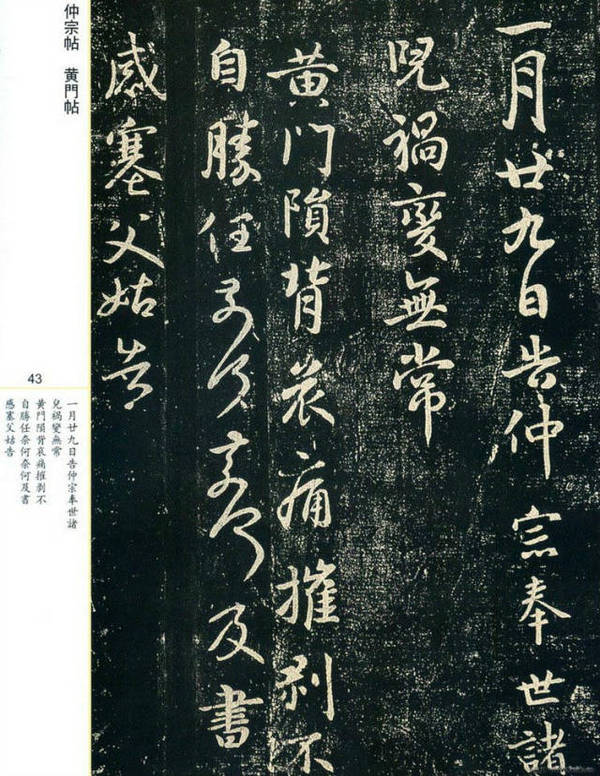 一月廿九日告仲宗奉世諸
兒禍變無常
黄门隕背哀痛摧剥不
自勝任奈何奈何及書
感塞父姑告
仲宗帖 黄門帖
43
一月廿九日告仲宗奉世諸
兒禍變無常
黃門隕背哀痛摧剥不
自勝任奈何奈何及書
感塞父姑告